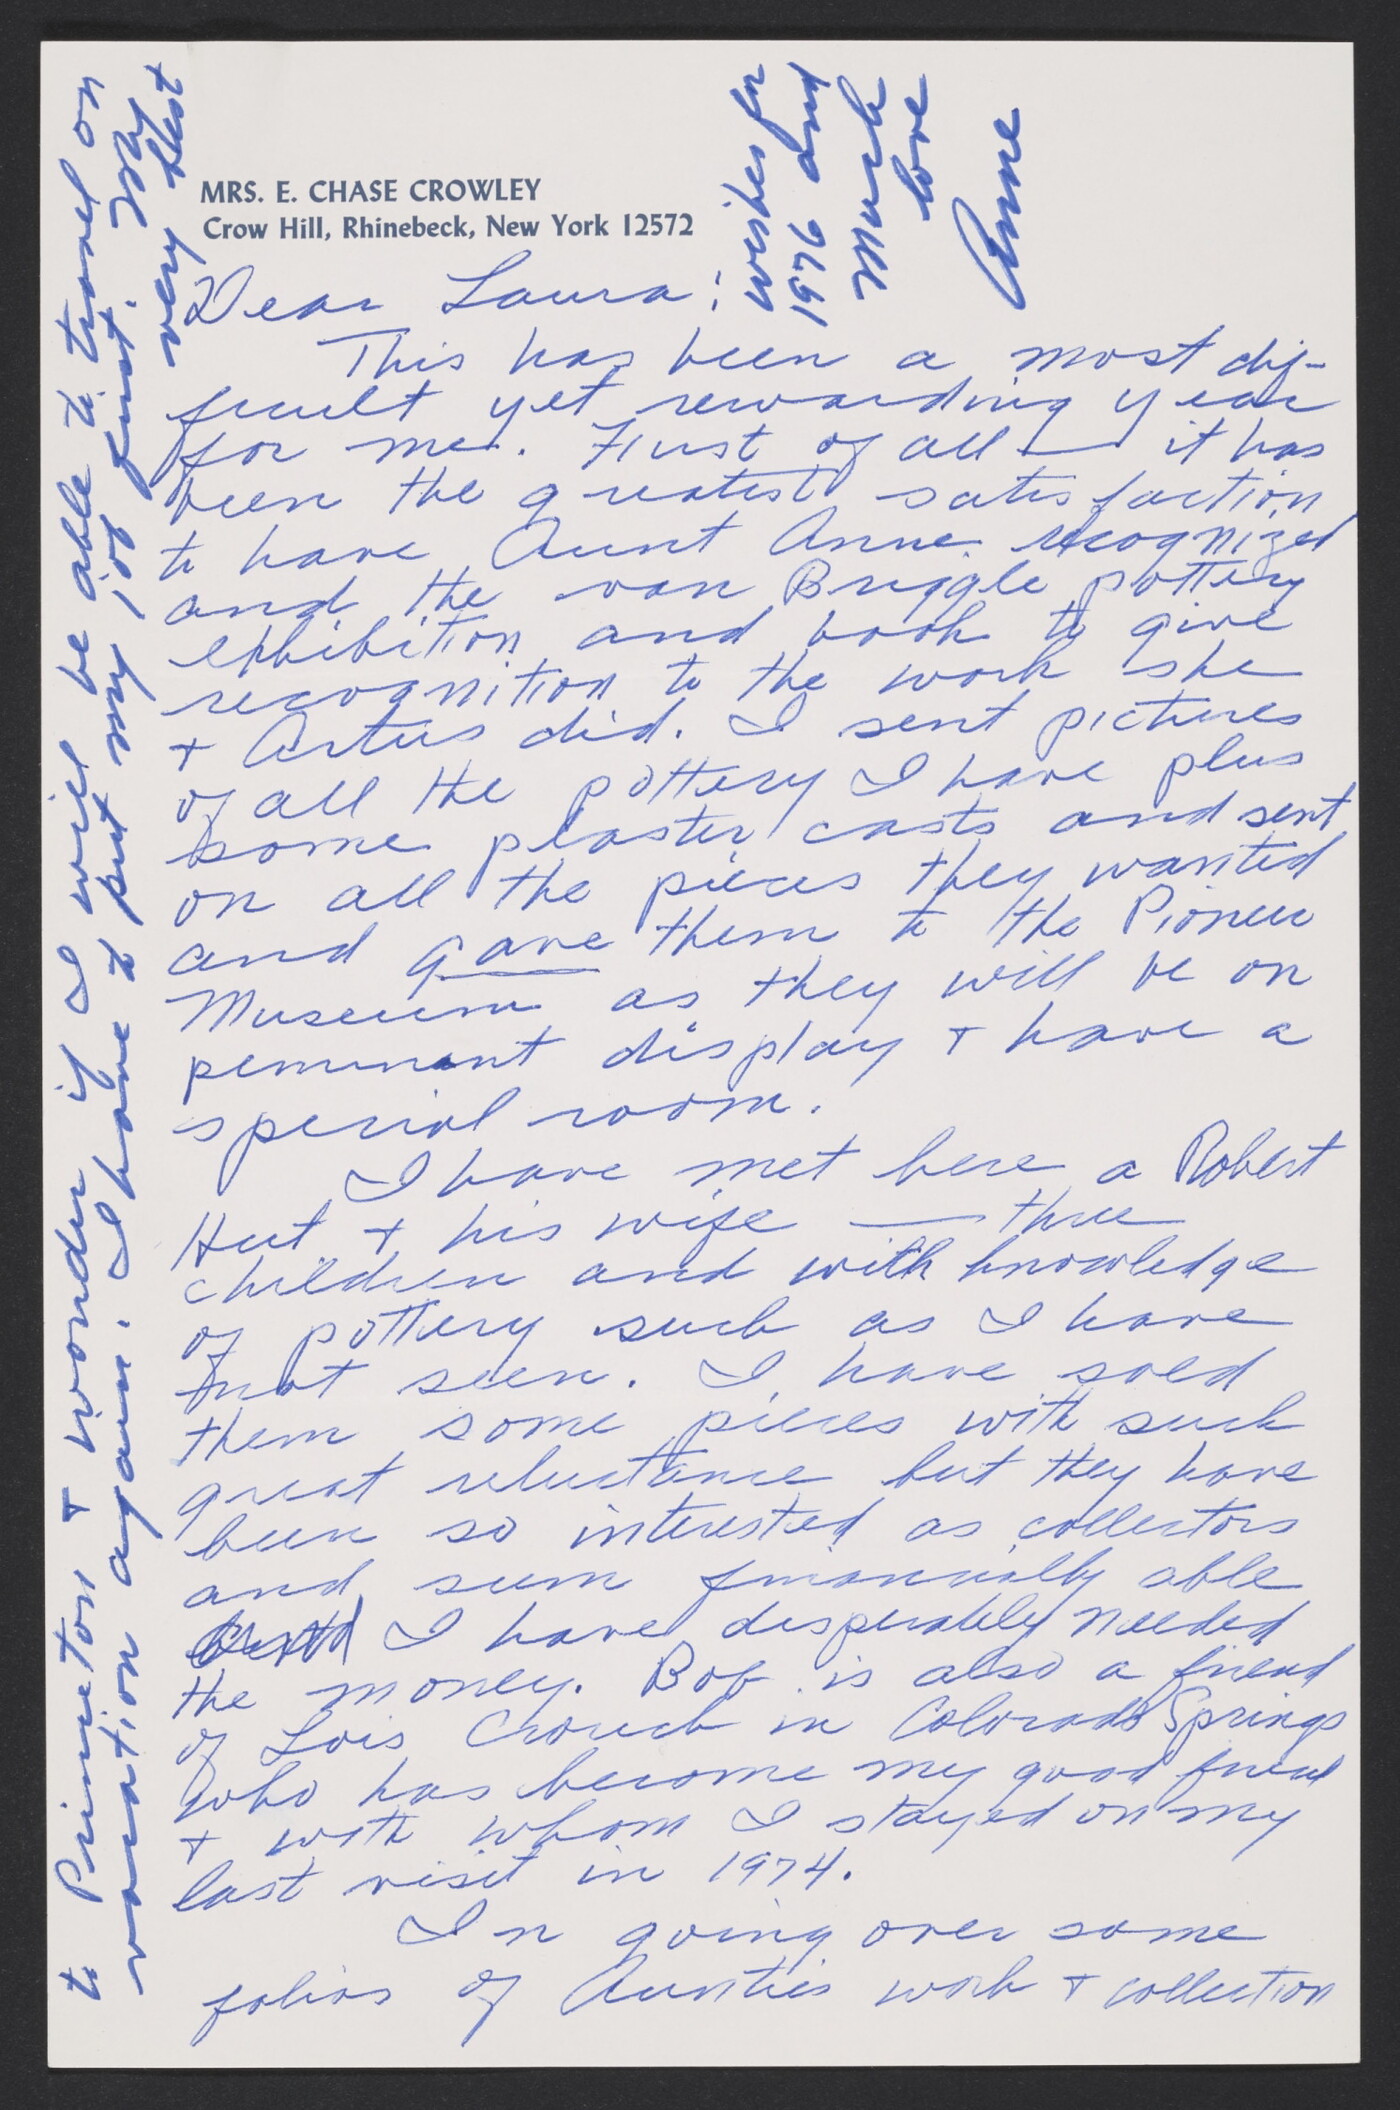 MRS. E. CHASE CROWLEY
Crow Hill, Rhinebeck, New York 12572
Dear Laura:
This has been a most dif-
ficult yet rewarding year
for me. First of all — it has
been the greatest satisfaction
to have Aunt Anne recognized
and the van Briggle pottery
exhibition and book to give
recognition to the work she
+ Artus did. I sent pictures
of all the pottery I have plus
some plaster casts and sent
on all the pieces they wanted
and gave them to the Pioneer
Museum as they will be on
permanant display + have a
special room.
I have met here a Robert
Hut + his wife — three
children and with knowledge
of pottery such as I have
not seen. I have sold
them some pieces with such
great reluctance but they have
been so interested as collectors
and seem financially able
and I have desperately needed
the money. Bob is also a friend
of Lois Crouch in Colorado Springs
who has become my good friend
+ with whom I stayed on my
last visit in 1974.
In going over some
folios of Aunties work + collection
to Princeton + wonder if I will be able to travel on
vacation again. I have to put my job first. My
very best
wishes for
1976 and
Much
love
Anne